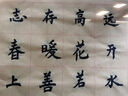 志存高远
春暖花开
上善若水